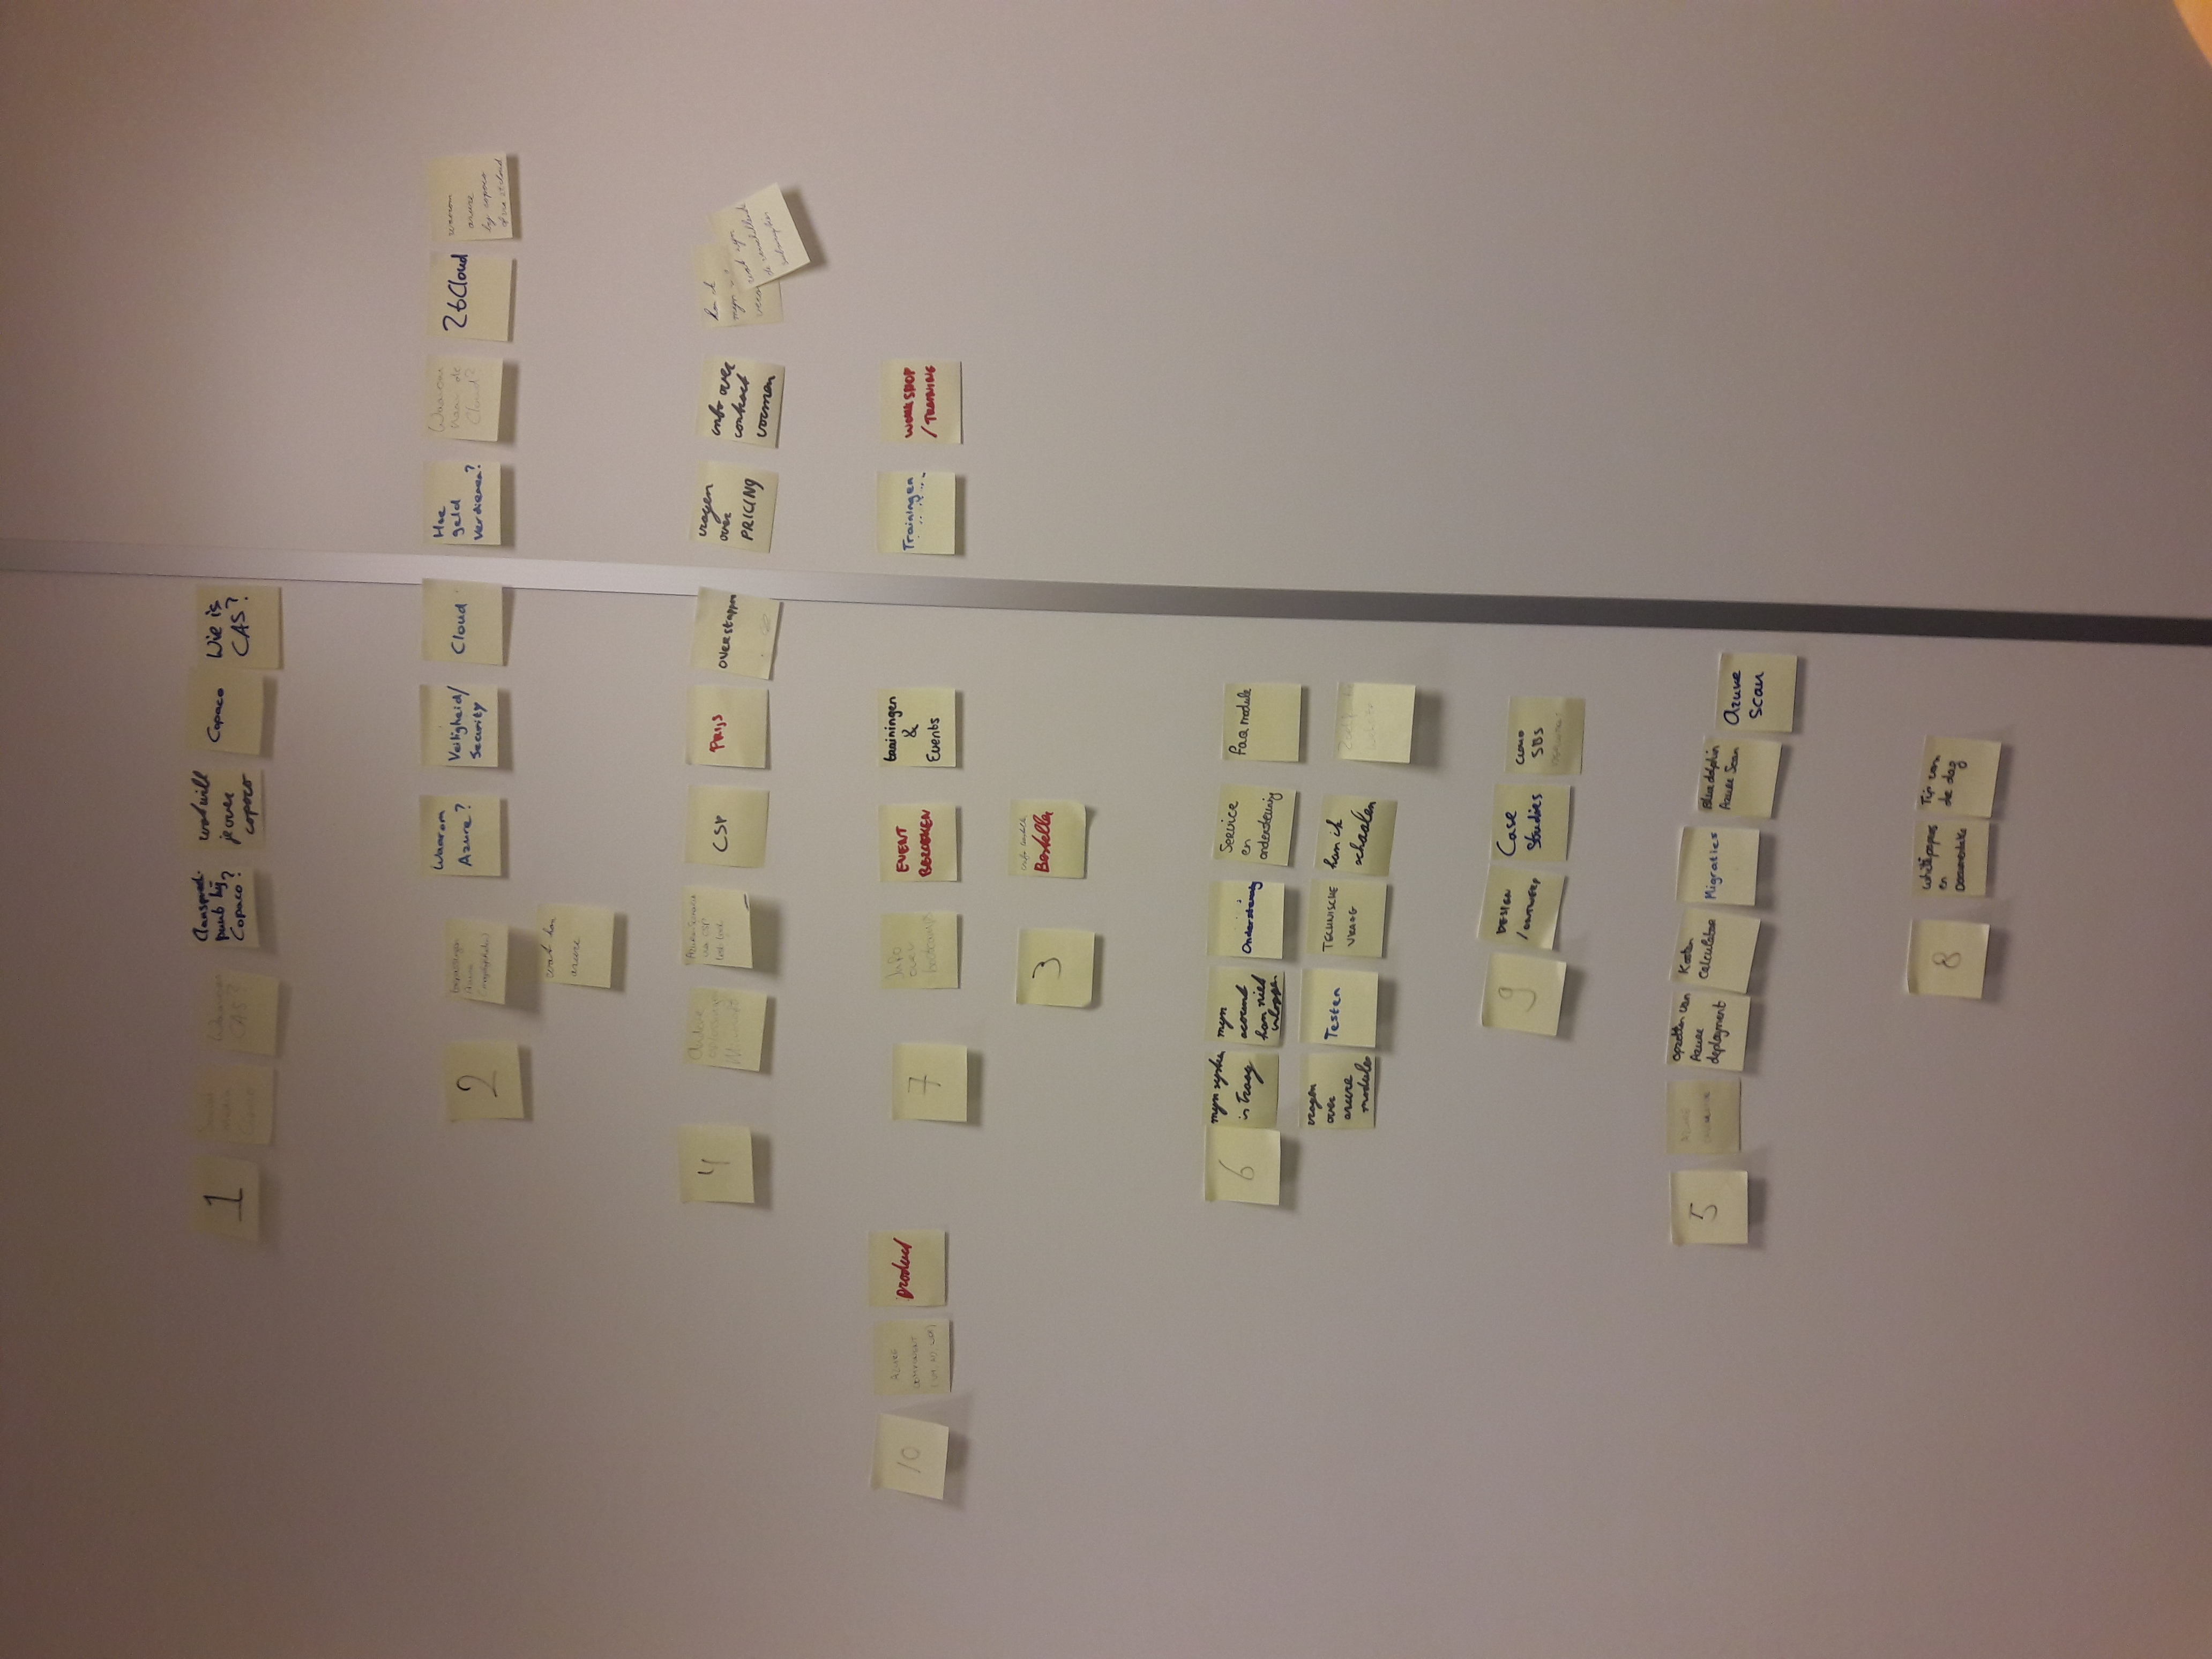 1
Waarom
CAS?
Aanspreek-
punt bij
Copaco?
wat will
je over
copaco
Copaco
Wie is
CAS?
2
toepassingen
Azure
Waarom
Azure?
Veiligheid/
Security
Cloud
Hoe
geld
verdienen?
Waarom
naar de
Cloud?
2tCloud
waarom
azure
bij copaco
of via 2tcloud
wat kan
azure
4
Andere
oplossingen
Microsoft
via CSP
CSP
PRIJS
overstappen
vragen
over
PRICING
info over
contract
vormen
kan ik
mijn
wat zijn
de verschillende
10
AZURE
COMPONENT
product
7
Info
over
bootcamps
EVENT
BEZOEKEN
trainingen
&
Events
Trainingen
WORKSHOP
/ TRAINING
3
info
Bestellen
6
mijn system
is traag
mijn
account
kan niet
inloggen
Ondersteuning
Service
en
ondersteuning
FaQ module
vragen
over
azure
modules
Testen
TECHNISCHE
VRAAG
kan ik
schaalen
Website
9
DESIGN
/ ONTWERP
Case
Studies
CLOUD
SBS
5
AZURE
opzetten van
Azure
deployment
Kosten
calculator
Migraties
Blue dolphin
Azure Scan
Azure
scan
8
Whitepapers
en
Documentatie
Tip van
de dag